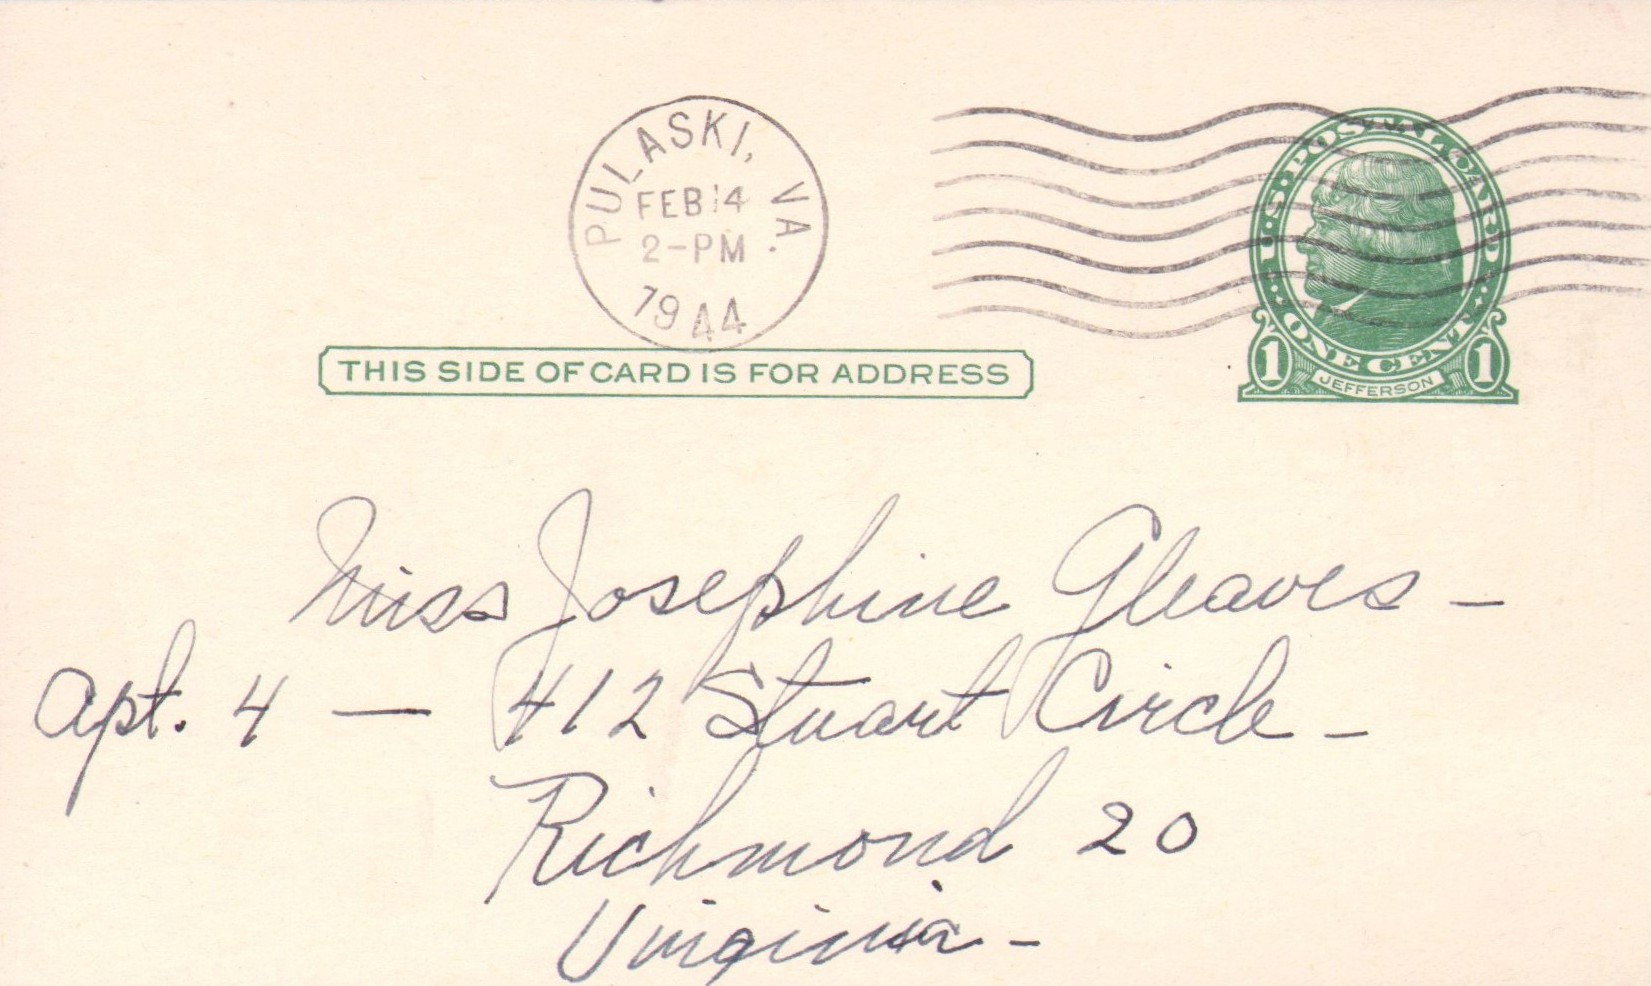 PULASKI, VA.
FEB 14
2-PM
1944
U·S·POSTAL CARD
·ONE CENT·
1 JEFFERSON 1
THIS SIDE OF CARD IS FOR ADDRESS
Miss Josephine Gleaves –
Apt. 4 — 412 Stuart Circle –
Richmond 20
Virginia –